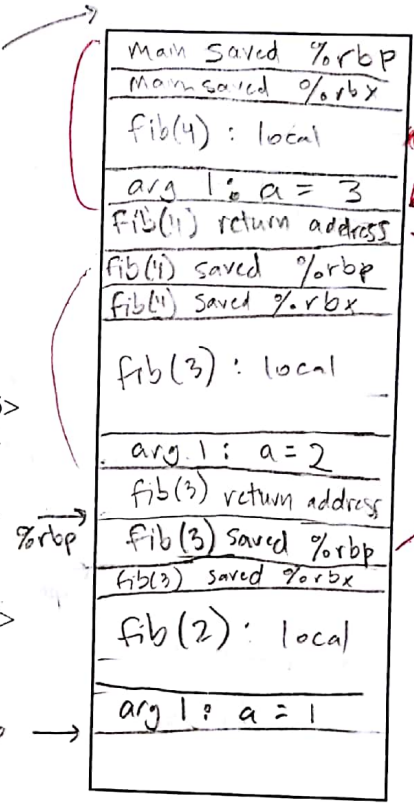 Main saved %rbp
Main saved %rbx
fib(4) : local
arg 1: a = 3
fib(4) return address
fib(4) saved %rbp
fib(4) saved %rbx
fib(3) : local
arg. 1: a = 2
fib(3) return address
%rbp
fib(3) saved %rbp
fib(3) saved %rbx
fib(2) : local
arg 1: a = 1
>
>